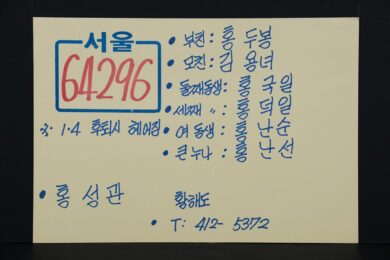 서울
64296
※ 1·4 후퇴시 헤어짐
• 부친 : 홍 두봉
• 모친 : 김 용녀
• 둘째동생 : 홍 국일
• 세째 〃 : 홍 덕일
• 여 동생 : 홍 난순
• 큰누나 : 홍 난선
• 홍 성관
황해도
• T: 412- 5372